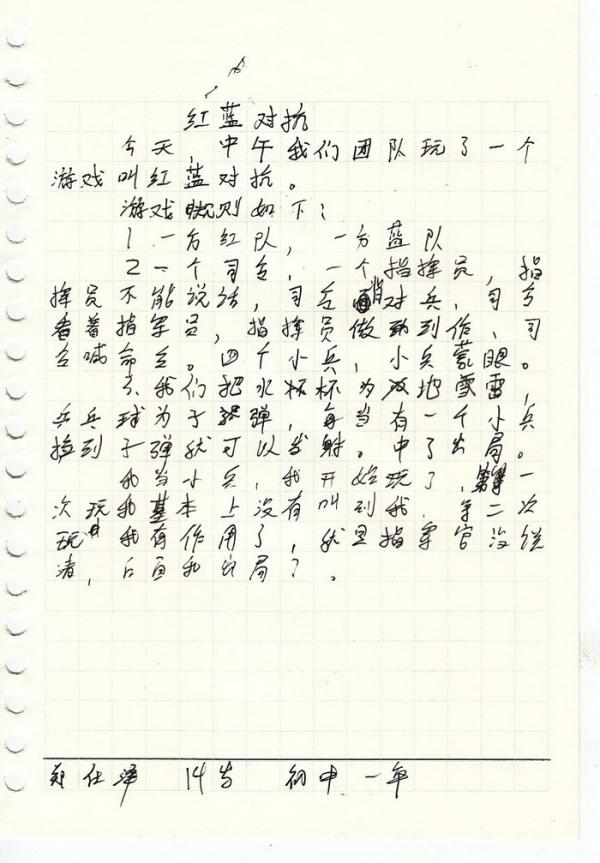 红蓝对抗
今天,中午我们团队玩了一个
游戏叫红蓝对抗。
游戏规则如下:
1 一方红队,一方蓝队
2 一个司令,一个指挥员,指
挥员不能说话,司令背对兵,司令
看着指军员,指挥员做动作,司
令喊命令。四个小兵,小兵蒙眼。
3、我们把水杯为地雷,
乒乓球为子弹,每当有一个小兵
捡到子弹就可以发射。中了出局。
我当小兵,我开始玩了,第一
次玩我基本上没有叫到我,第二次
玩我有作用了,就是指军官没说
清,后面我出局了。
任泽 14岁 初中一年